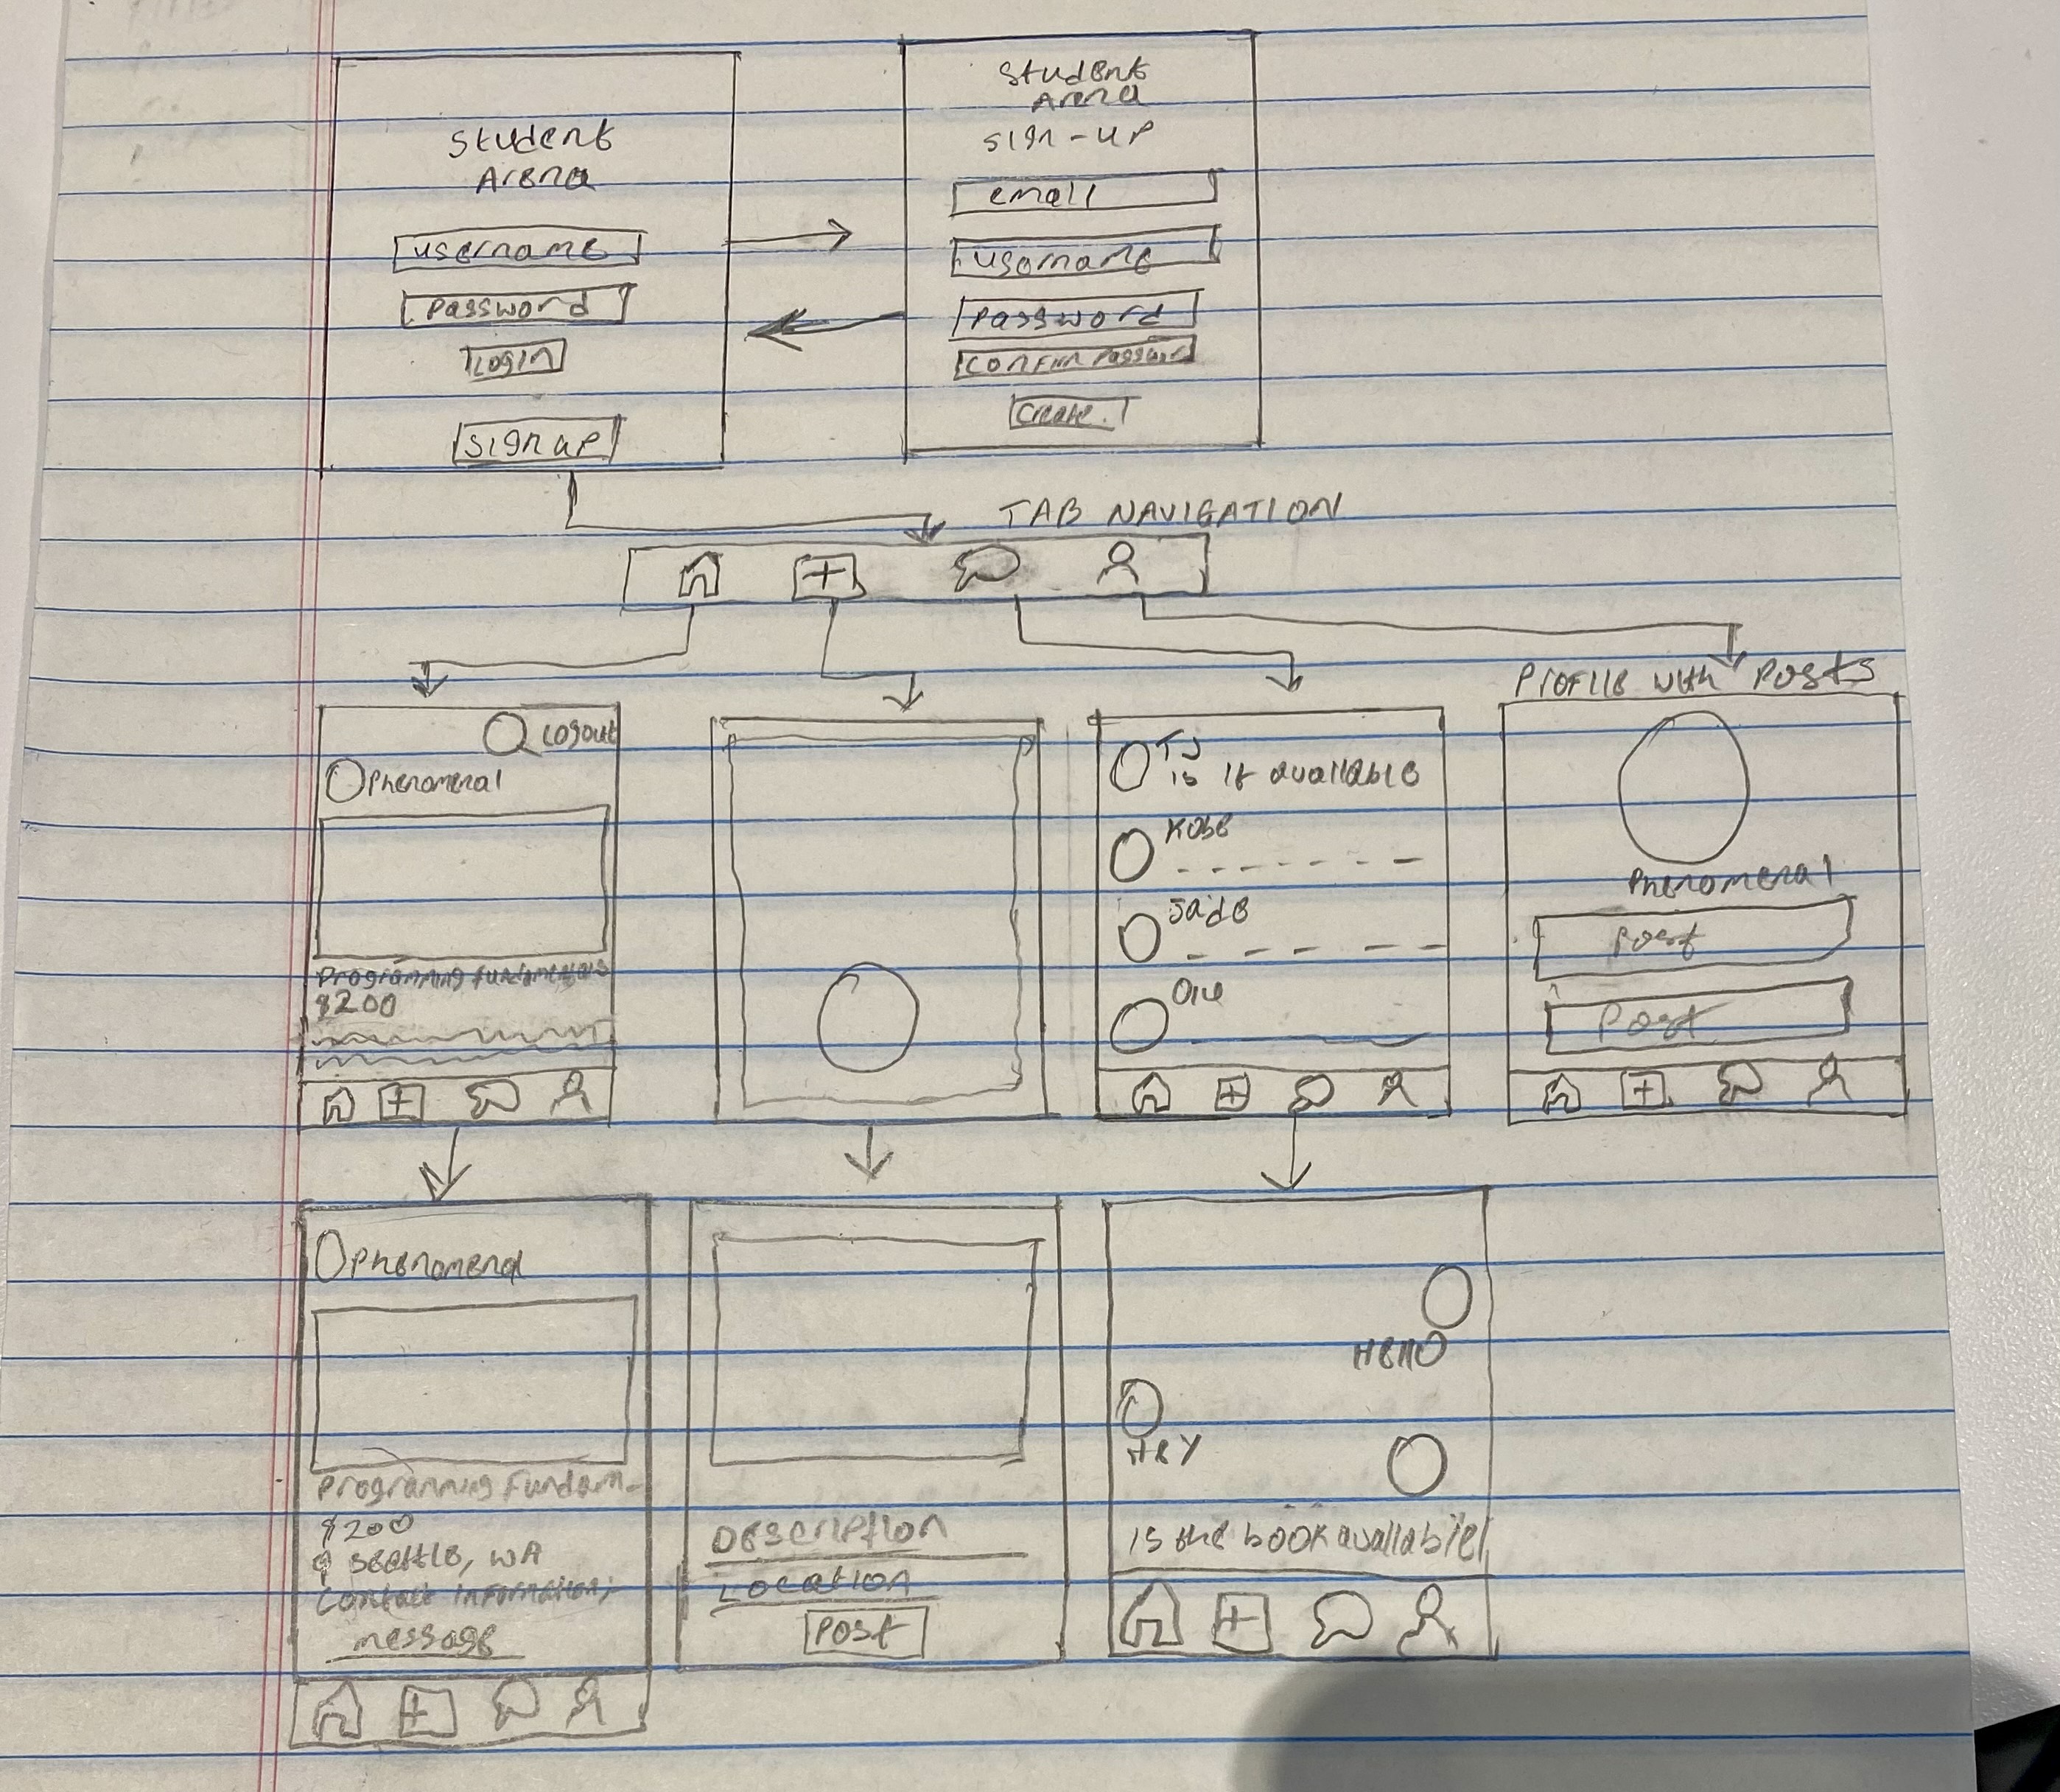 Student
Arena
username
Password
Login
Sign up
Student
Arena
Sign-up
email
username
Password
Confirm Password
Create
TAB NAVIGATION
Logout
Phenomenal
Programming fundamentals
$200
TJ
is it available
Kobe
Jade
Profile with Posts
Phenomenal
Post
Post
Phenomenal
Programming Fundam-
$200
Seattle, WA
Contact information:-
message
Description
Location
Post
Hello
Hey
is the book available